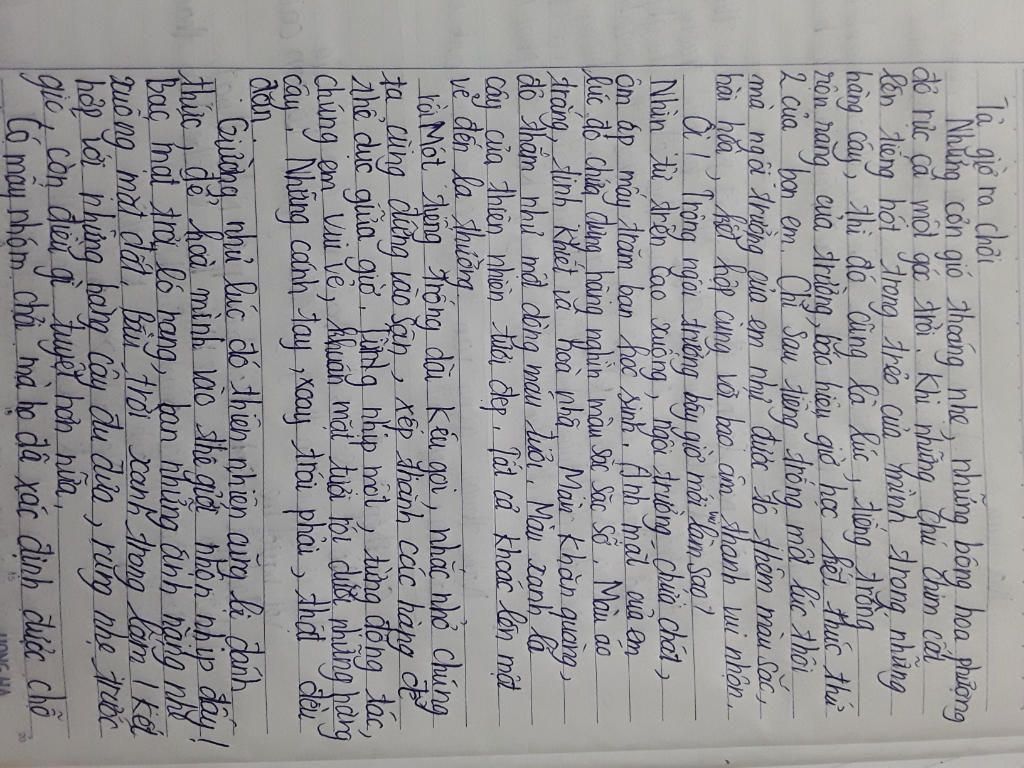 Tả giờ ra chơi
Những cơn gió thoáng nhẹ, những bông hoa phượng
đỏ rực cả một góc trời. Khi những chú chim cất
lên tiếng hót trong trẻo của mình trong những
hàng cây, thì đó cũng là lúc, tiếng trống
rộn ràng của trường, báo hiệu giờ học kết thúc thứ
2 của bọn em. Chỉ sau tiếng trống một lúc thôi
mà ngôi trường của em như được tô thêm màu sắc,
hài hòa, kết hợp cùng với bao âm thanh vui nhộn.
Ôi! Trông ngôi trường bây giờ mới vui làm sao?
Nhìn từ trên cao xuống, ngôi trường chứa chất,
ôm ấp mấy trăm bạn học sinh. Ánh mắt của em
lúc đó chứa đựng hàng nghìn màu sắc sặc sỡ. Màu áo
trắng, tinh khiết là hoa nhã. Màu khăn quàng,
đỏ thắm như một dòng máu tươi. Màu xanh lá
cây của thiên nhiên tươi đẹp. Tất cả khoác lên một
vẻ đến lạ thường
Một tiếng trống dài kêu gọi, nhắc nhở chúng
ta cùng đứng vào sân, xếp thành các hàng để
thể dục giữa giờ. Từng nhịp một, từng động tác,
chúng em vui vẻ, khuôn mặt tươi rói dưới những hàng
cây. Những cánh tay, xoay trái phải, thật đều
đặn.
Giường như lúc đó thiên nhiên cũng bị đánh
thức, để hoà mình vào thế giới nhộn nhịp đấy!
Bác mặt trời ló rạng, ban những ánh nắng nhẹ
xuống mặt đất. Bầu trời xanh trong lắm! Kết
hợp với những hàng cây đu đưa, rung nhẹ trước
gió, còn điều gì tuyệt hơn nữa.
Có mấy nhóm chơi mà họ đã xác định được chỗ